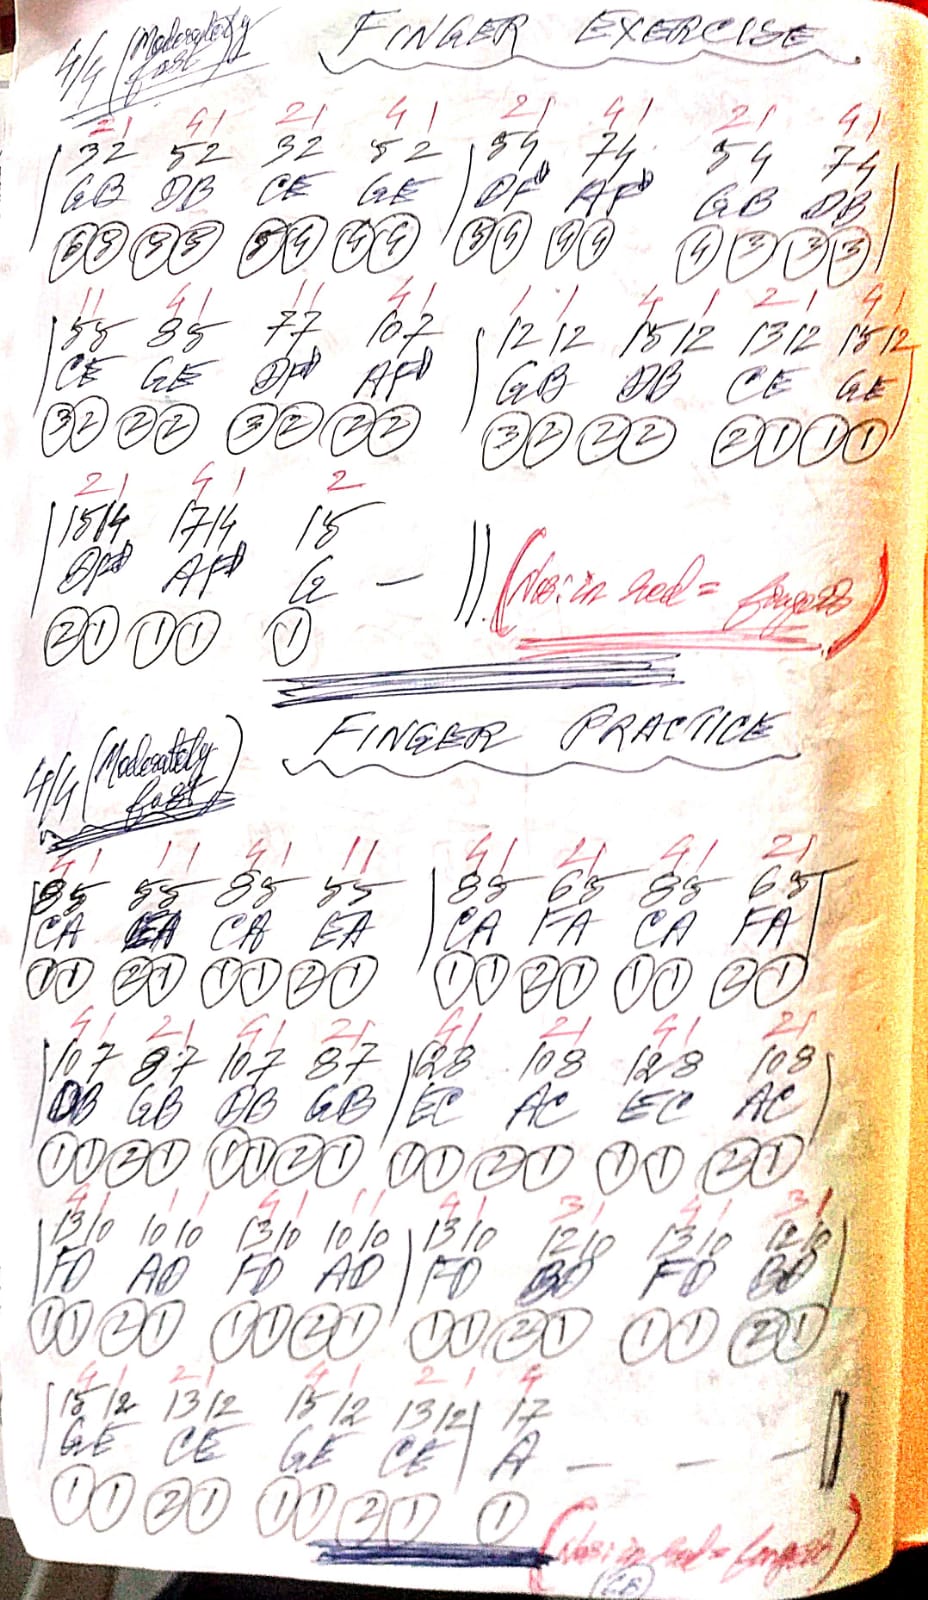 4/4 (Moderately fast) FINGER EXERCISE
21 41 21 41 21 41 21 41
| 32 52 32 52 | 54 74 54 74 |
GB DB CE GE DF# AF# GB DB
11 41 11 41 11 41 21 41
| 55 85 77 107 | 1212 1512 1312 1512
CE GE DF# AF# GB DB CE GE
32 22 32 22 32 22 21 11
21 41 2
| 1514 1714 15
DF# AF# G — || (Nos: in red = fingers)
21 11 1
FINGER PRACTICE
4/4 (Moderately fast)
41 11 41 11 41 21 41 21
| 85 55 85 55 | 85 65 85 65 |
CA EA CA EA CA FA CA FA
11 21 11 21 11 21 11 21
41 21 41 21 41 21 41 21
| 107 87 107 87 | 128 108 128 108 |
DB GB DB GB EC AC EC AC
11 21 11 21 11 21 11 21
41 11 41 11 41 31 41 31
| 1310 1010 1310 1010 | 1310 1210 1310 1210 |
FD AD FD AD FD BD FD BD
11 21 11 21 11 21 11 21
41 21 41 21 4
| 1512 1312 1512 1312 | 17
GE CE GE CE A — — — ||
11 21 11 21 1
(Nos: in red = fingers)